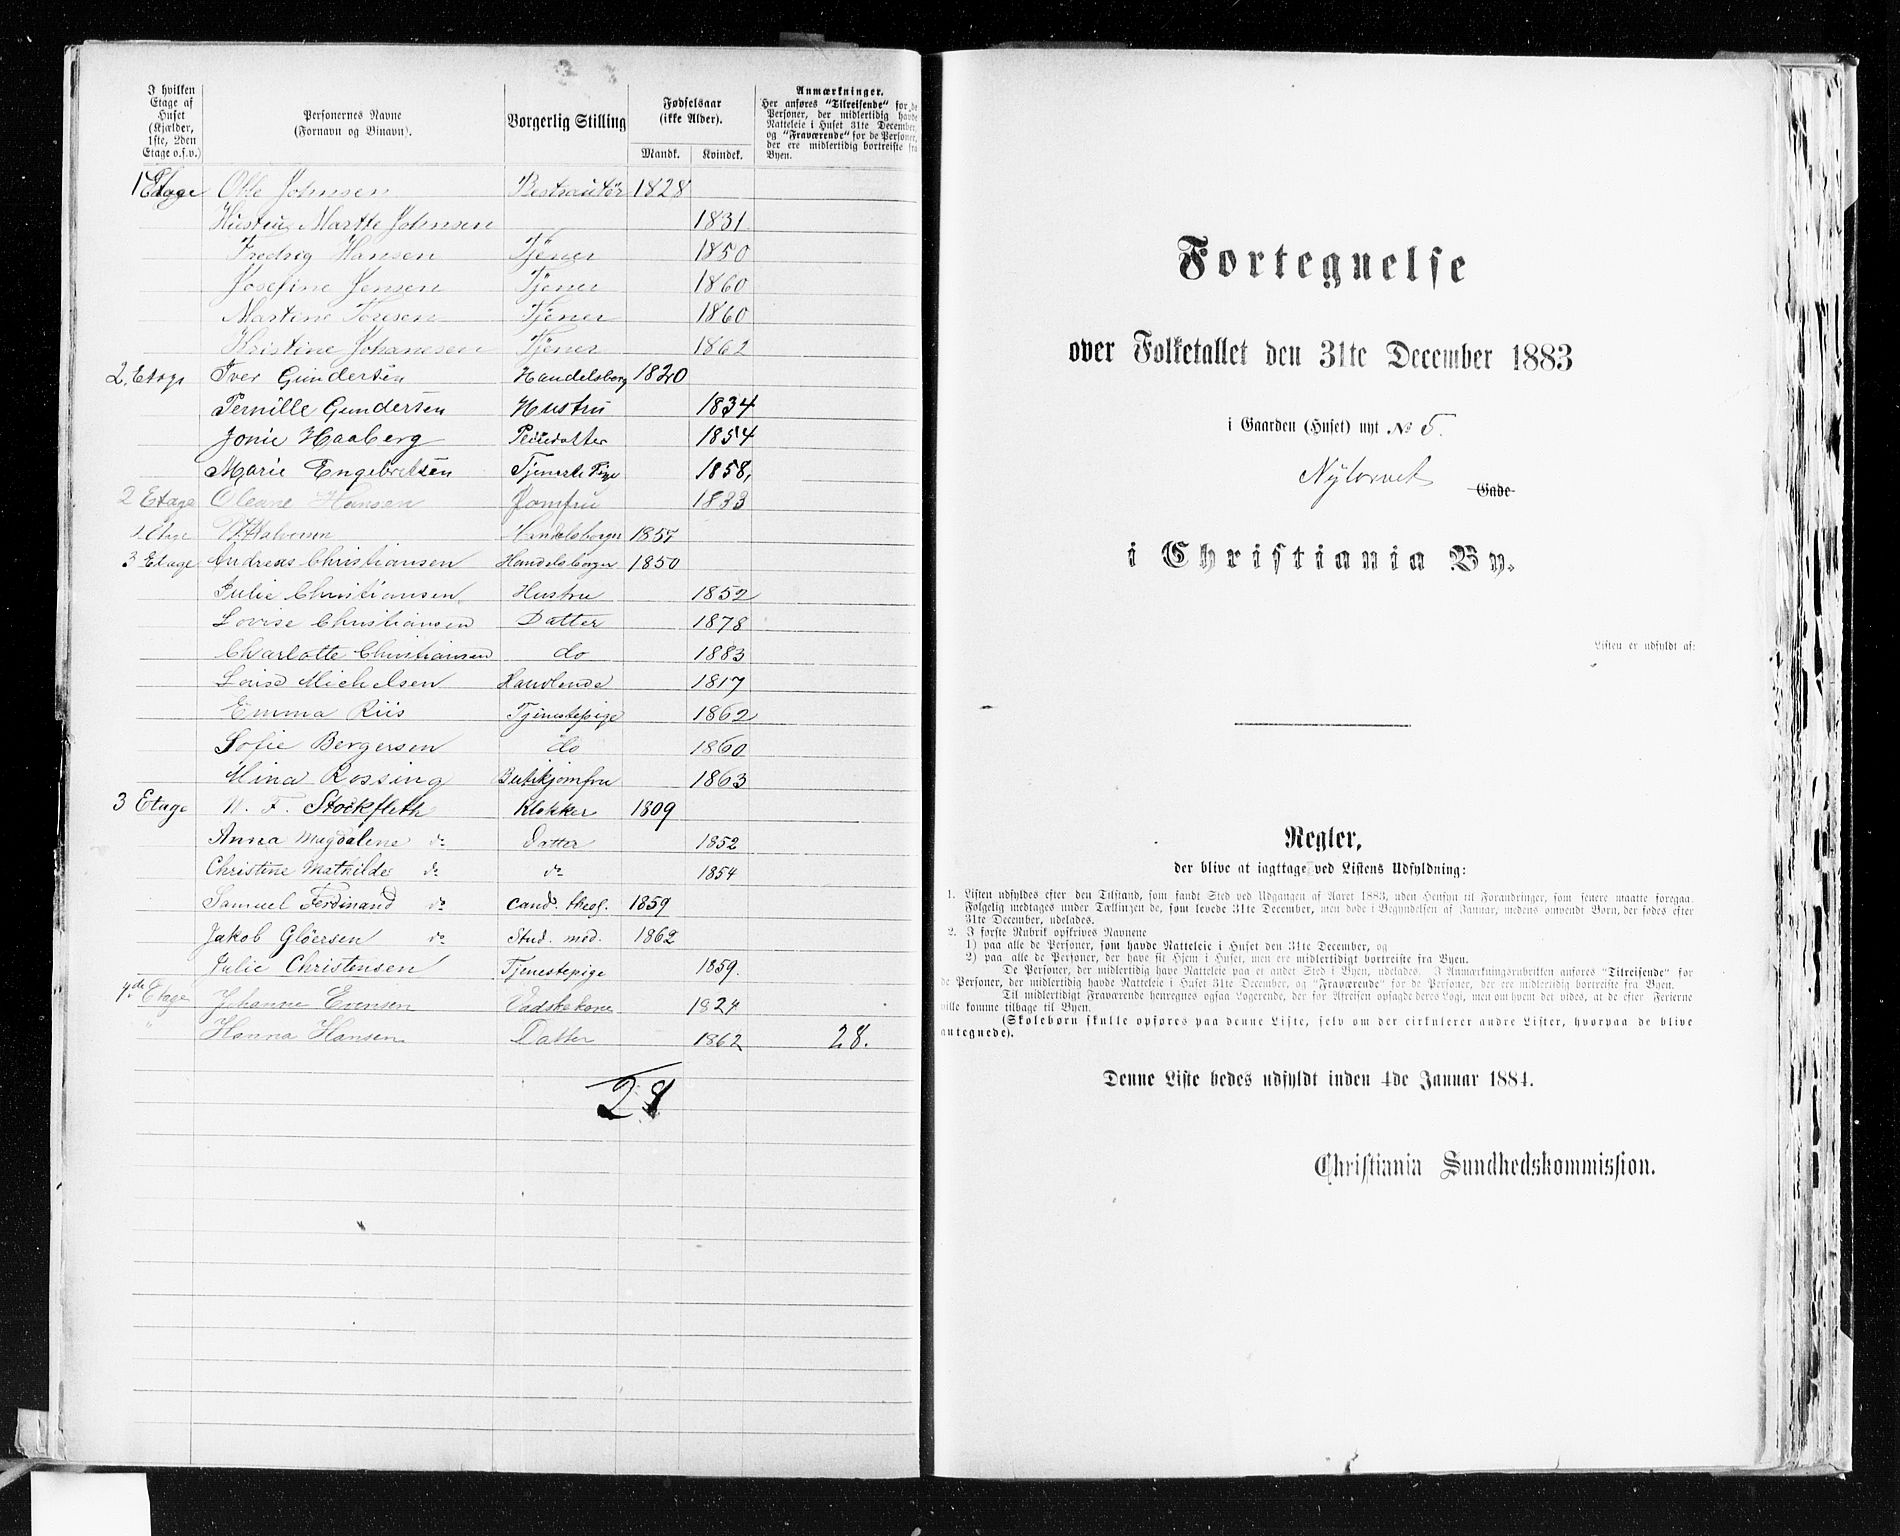 I hvilken
Etage af
Huset
(Kjælder,
1ste, 2den
Etage o.s.v.)
Personernes Navne
(Fornavn og Binavn).
Borgerlig Stilling
Fødselsaar
(ikke Alder).
Mandk. Kvindek.
Anmærkninger.
Her anføres "Tilreisende" for de
Personer, der midlertidig havde
Natteleie i Huset 31te December,
og "Fraværende" for de Personer,
der ere midlertidig bortreiste fra
Byen.
1 Etage Olle Johnsen Restrautör 1828
Hustru Marthe Johnsen 1831
Fredrig Hansen Tjener 1850
Josefine Jensen Tjener 1860
Martine Toresen Tjener 1860
Kristine Johansen Tjener 1862
2. Etage Iver Gundersen Handelsborg 1820
Pernille Gundersen Hustru 1834
Jonie Haaberg Pleiedatter 1854
Marie Engebretsen Tjeneste Pige 1858,
2 Etage Oleane Hansen Jomfru 1833
Halvorsen Handelsborger 1857
3 Etage Andreas Christiansen Handelsborger 1850
Julie Christiansen Hustru 1852
Lovise Christiansen Datter 1878
Charlotte Christiansen do 1883
Lovise Michelsen Handlende 1817
Emma Riis Tjenestepige 1862
Sofie Bergersen do 1860
Mina Rossing Butikjomfru 1863
3 Etage N. F. Stockfleth Klokker 1809
Anna Magdalene do Datter 1852
Christine Mathilde do do 1854
Samuel Ferdinand do Cand. theol. 1859
Jakob Gløersen do Stud. med. 1862
Julie Christensen Tjenestepige 1859.
4de Etage Johanne Evensen Vadskekone 1824
" Hanna Hansen Datter 1862 28.
28
Fortegnelse
over Folketallet den 31te December 1883
i Gaarden (Huset) nyt No 5.
Nytorvet Gade
i Christiania By.
Listen er udfyldt af:
Regler,
der blive at iagttage ved Listens Udfyldning:
1. Listen udfyldes efter den Tilstand, som fandt Sted ved Udgangen af Aaret 1883, uden Hensyn til Forandringer, som senere maatte foregaa.
Folgelig medtages under Tællingen de, som levede 31te December, men døde i Begyndelsen af Januar, medens omvendt Børn, der fødes efter
31te December, udelades.
2. I første Rubrik opskrives Navnene
1) paa alle de Personer, som havde Natteleie i Huset den 31te December, og
2) paa alle de Personer, der have sit Hjem i Huset, men ere midlertidigt bortreiste fra Byen.
De Personer, der midlertidig have Natteleie paa et andet Sted i Byen, udelades. I Anmærkningsrubriken anføres "Tilreisende" for
de Personer, der midlertidig havde Natteleie i Huset 31te December, og "Fraværende" for de Personer, der ere midlertidig bortreiste fra Byen.
Til midlertidigt Fraværende henregnes ogsaa Logerende, der før Afreisen opsagde deres Logi, men om hvem det vides, at de efter Ferierne
ville komme tilbage til Byen.
(Skolebørn skulle opføres paa denne Liste, selv om der cirkulerer andre Lister, hvorpaa de blive
antegnede).
Denne Liste bedes udfyldt inden 4de Januar 1884.
Christiania Sundhedskommission.